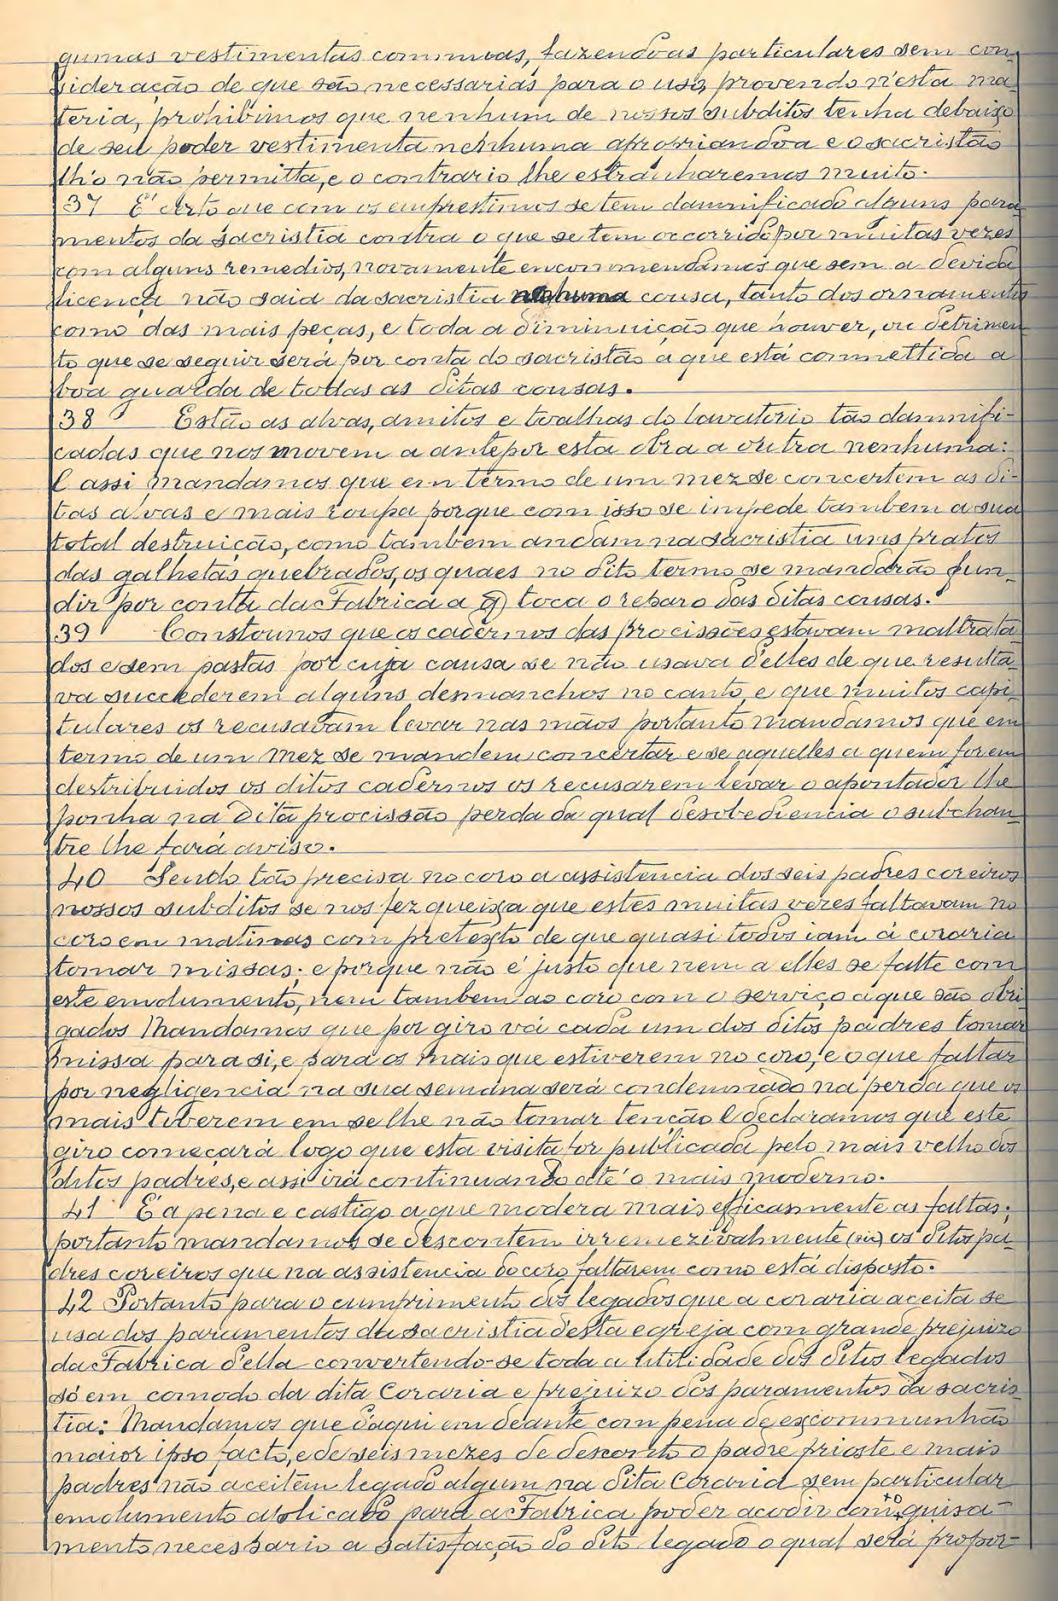 gumas vestimentas commuas, fazendo-as particulares sem con-
sideração de que são necessarias para o uso, provendo n'esta ma-
teria, prohibimos que nenhum de nossos subditos tenha debaixo
de seu poder vestimenta nenhuma apropriando-a e o sacristão
lh'o não permitta, e o contrario lhe estranharemos muito.
37 É certo que com os emprestimos se tem damnificado alguns para-
mentos da sacristia contra o que se tem occorrido por muitas vezes
com alguns remedios, novamente encommendamos que sem a devida
licença não saia da sacristia nenhuma cousa, tanto dos ornamentos
como das mais peças, e toda a diminuição que houver, ou detrimen-
to que se seguir será por conta do sacristão a que está commettida a
boa guarda de todas as ditas cousas.
38 Estão as alvas, amitos e toalhas do lavatorio tão damnifi-
cadas que nos movem a antepor esta obra a outra nenhuma:
E assi mandamos que em termo de um mez se concertem as di-
tas alvas e mais roupa porque com isso se impede tambem a sua
total destruição, como tambem andam na sacristia uns pratos
das galhetas quebrados, os quaes no dito termo se mandarão fun-
dir por conta da Fabrica a q̃ toca o reparo das ditas cousas.
39 Constou-nos que os cadernos das procissões estavam maltrata-
dos e sem pastas por cuja causa se não usava d'elles de que resulta-
va succederem alguns desmanchos no canto, e que muitos capi-
tulares os recusavam levar nas mãos portanto mandamos que em
termo de um mez se mandem concertar e se aquelles a quem forem
destribuidos os ditos cadernos os recusarem levar o apontador lhe
ponha na dita procissão perda da qual desobediencia o subchan-
tre lhe fará aviso.
40 Sendo tão precisa no coro a assistencia dos seis padres coreiros
nossos subditos se nos fez queixa que estes muitas vezes faltavam no
coro em matinas com pretexto de que quasi todos iam á coraria
tomar missas; e porque não é justo que nem a elles se falte com
este emolumento, nem tambem ao coro com o serviço a que são obri-
gados Mandamos que por giro vá cada um dos ditos padres tomar
missa para si, e para os mais que estiverem no coro, e o que faltar
por negligencia na sua semana será condemnado na perda que os
mais tiverem em se lhe não tomar tenção E declaramos que este
giro começará logo que esta visita for publicada pelo mais velho dos
ditos padres, e assi irá continuando até o mais moderno.
41 É a pena e castigo a que modera mais efficasmente as faltas;
portanto mandamos se descontem irremezivalmente (sic) os ditos pa-
dres coreiros que na assistencia do coro faltarem como está disposto.
42 Portanto para o cumprimento dos legados que a coraria aceita se
usa dos paramentos da sacristia desta egreja com grande prejuizo
da Fabrica d'ella convertendo-se toda a utilidade dos ditos legados
só em comodo da dita Coraria e prejuizo dos paramentos da sacris-
tia: Mandamos que d'aqui em deante com pena de excommunhão
maior ipso facto, e de seis mezes de desconto o padre prioste e mais
padres não aceitem legado algum na dita Coraria sem particular
emolumento aplicado para a Fabrica poder acodir com o guisa-
mento necessario a satisfação do dito legado o qual será propor-